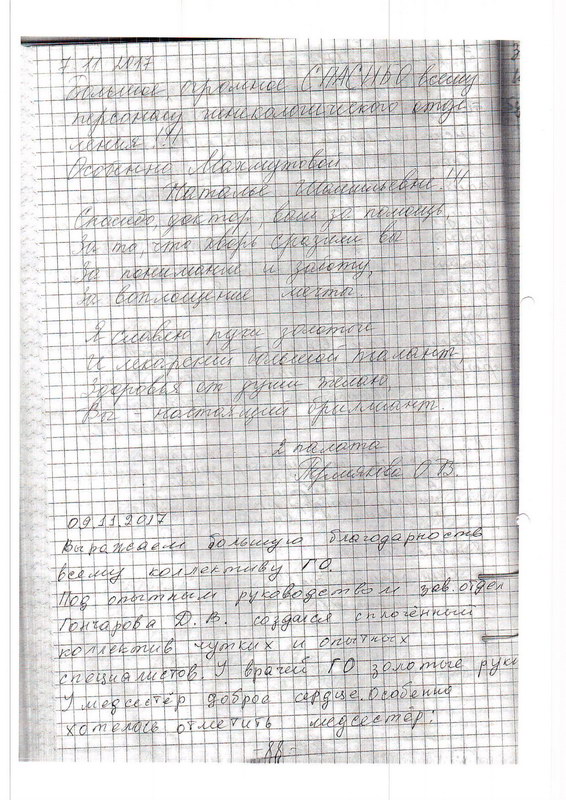 7 11 2017
Большое огромное СПАСИБО всему
персоналу гинекологического отде-
ления !!!
Особенно Махмутовой
Наталье Шамильевне!!!
Спасибо, доктор, вам за помощь,
За то, что хворь сразили вы
За понимание и заботу,
За воплощение мечты.
Я славлю руки золотые
И лекарский большой талант,
Здоровья от души желаю,
Вы - настоящий бриллиант.
2 палата
О В.
09.11.2017
Выражаем большую благодарность
всему коллективу ГО.
Под опытным руководством зав. отдел
Гончарова Д. В. создался сплочённый
коллектив чутких и опытных
специалистов. У врачей ГО золотые руки
У медсестёр доброе сердце. Особенно
хотелось отметить медсестёр:
- 88 -